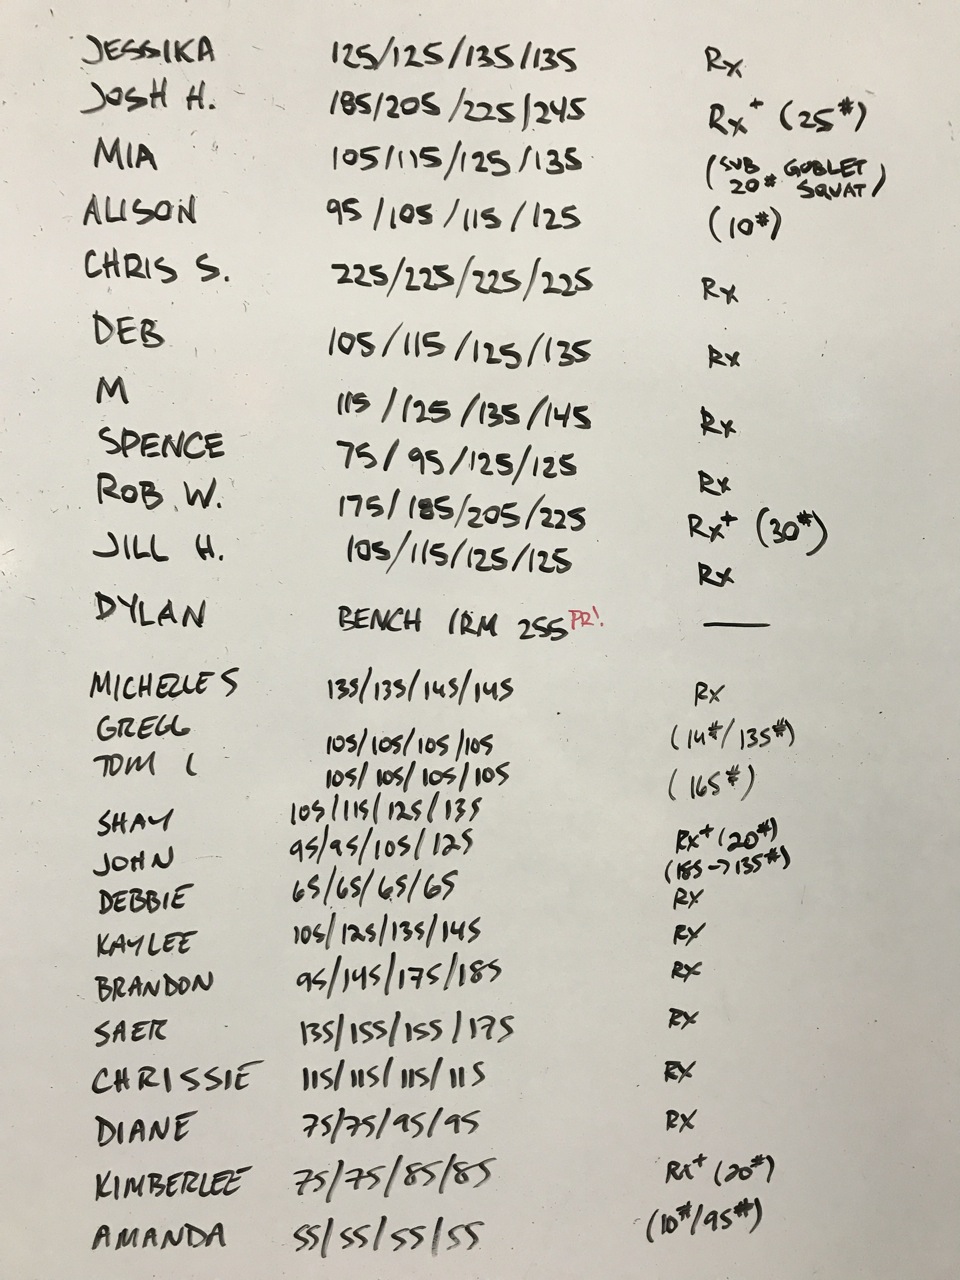 JESSIKA 125/125/135/135 Rx
JOSH H. 185/205/225/245 Rx+ (25#)
MIA 105/115/125/135 (SUB 20# GOBLET SQUAT)
ALISON 95/105/115/125 (10#)
CHRIS S. 225/225/225/225 Rx
DEB 105/115/125/135 Rx
M 115/125/135/145 Rx
SPENCE 75/95/125/125 Rx
ROB W. 175/185/205/225 Rx+ (30#)
JILL H. 105/115/125/125 Rx
DYLAN BENCH 1RM 255 PR! —
MICHELLE S 135/135/145/145 Rx
GREGG 105/105/105/105 (14#/135#)
TOM L 105/105/105/105 (165#)
SHAY 105/115/125/135 Rx+ (20#)
JOHN 95/95/105/125 (185→135#)
DEBBIE 65/65/65/65 Rx
KAYLEE 105/125/135/145 Rx
BRANDON 95/145/175/185 Rx
SAER 135/155/155/175 Rx
CHRISSIE 115/115/115/115 Rx
DIANE 75/75/95/95 Rx
KIMBERLEE 75/75/85/85 Rx+ (20#)
AMANDA 55/55/55/55 (10#/95#)